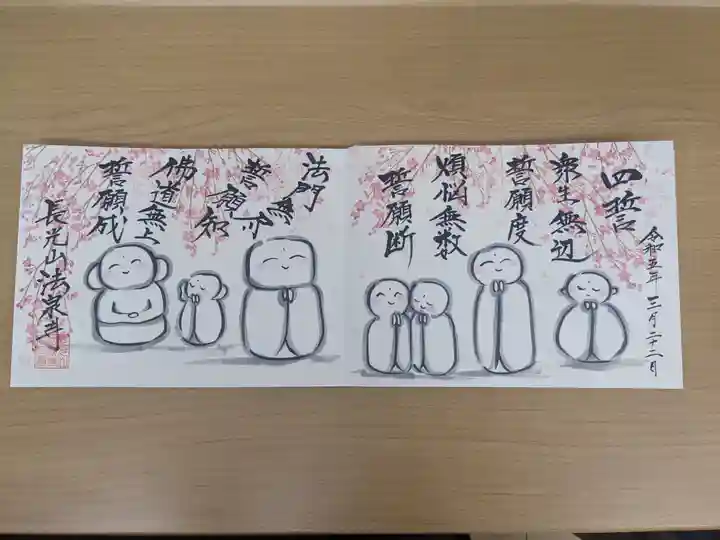 令和五年 三月二十二日
四誓
衆生無辺
誓願度
煩悩無数
誓願断
法門無
誓願知
佛道無上
誓願成
長光山法泉寺